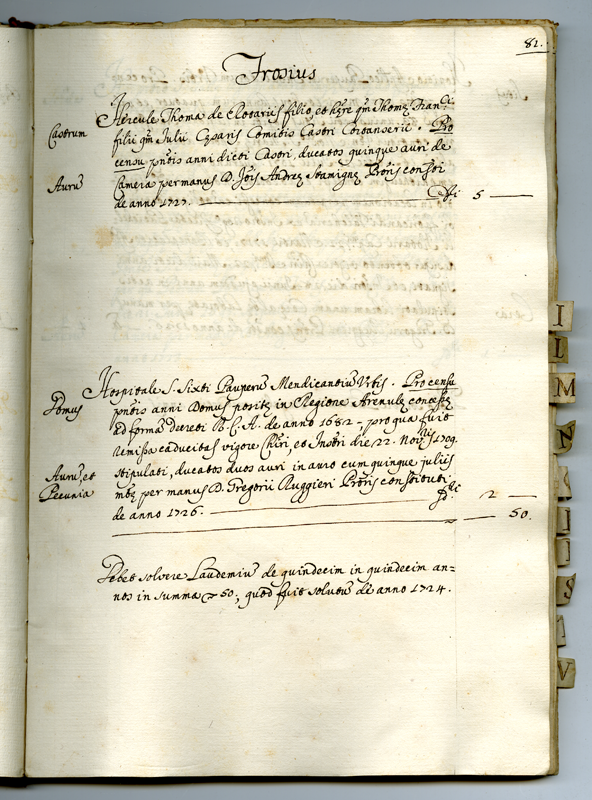 82.
Froxius
Hercule Thoma de Rotariis filio, et hęre qm Thomę Franci
Castrum
filii qm Julii Cęsaris Comitis Castri Cortanserii. Pro
censu pntis anni dicti Castri, ducatos quinque auri de
Auru
Camera per manus D. Jois Andreę Stamignę Proris constti
de anno 1727. Dti 5
Hospitale S. Sixti Pauperu Mendicantiu Urbis. Pro censu
Domus
pntis anni Domus positę in Regione Arenulę concessę
ad forma decreti R. C. A. de anno 1682 -, pro qua fuit
remissa caducitas vigore Chiri, et Instri die 22. Novbris 1709.
Auru, et
Pecunia
stipulati, ducatos duos auri in auro cum quinque juliis
mtę per manus D. Gregorii Ruggieri Proris constituti
de anno 1726. Dti 2
50.
Debet solvere Laudemiu de quindecim in quindecim an=
nos in summa 50, quod fuit solutu de anno 1724.
I
L
M
N
S
T
V